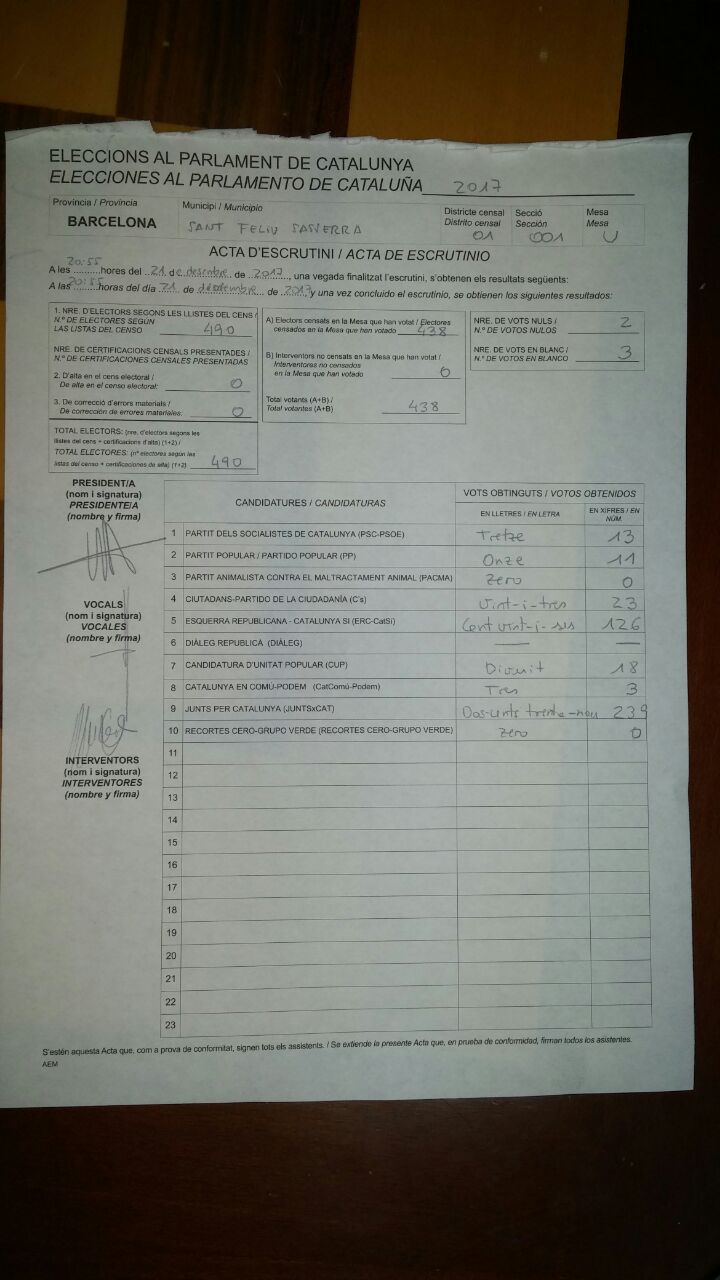 ELECCIONS AL PARLAMENT DE CATALUNYA
ELECCIONES AL PARLAMENTO DE CATALUÑA 2017
Província / Provincia
BARCELONA
Municipi / Municipio
SANT FELIU SASSERRA
Districte censal
Distrito censal
01
Secció
Sección
001
Mesa
Mesa
U
ACTA D'ESCRUTINI / ACTA DE ESCRUTINIO
A les 20:55 hores del 21 de desembre de 2017, una vegada finalitzat l'escrutini, s'obtenen els resultats següents:
A las 20:55 horas del día 21 de desembre de 2017 y una vez concluido el escrutinio, se obtienen los siguientes resultados:
1. NRE. D'ELECTORS SEGONS LES LLISTES DEL CENS /
N.º DE ELECTORES SEGÚN
LAS LISTAS DEL CENSO 490
NRE. DE CERTIFICACIONS CENSALS PRESENTADES /
N.º DE CERTIFICACIONES CENSALES PRESENTADAS
2. D'alta en el cens electoral /
De alta en el censo electoral: 0
3. De correcció d'errors materials /
De corrección de errores materiales: 0
TOTAL ELECTORS: (nre. d'electors segons les
llistes del cens + certificacions d'alta) (1+2) /
TOTAL ELECTORES: (nº electores según las
listas del censo + certificaciones de alta) (1+2) 490
A) Electors censats en la Mesa que han votat / Electores
censados en la Mesa que han votado 438
B) Interventors no censats en la Mesa que han votat /
Interventores no censados
en la Mesa que han votado 0
Total votants (A+B) /
Total votantes (A+B) 438
NRE. DE VOTS NULS /
N.º DE VOTOS NULOS 2
NRE. DE VOTS EN BLANC /
N.º DE VOTOS EN BLANCO 3
PRESIDENT/A
(nom i signatura)
PRESIDENTE/A
(nombre y firma)
VOCALS
(nom i signatura)
VOCALES
(nombre y firma)
INTERVENTORS
(nom i signatura)
INTERVENTORES
(nombre y firma)
CANDIDATURES / CANDIDATURAS
VOTS OBTINGUTS / VOTOS OBTENIDOS
EN LLETRES / EN LETRA
EN XIFRES / EN NÚM.
1 PARTIT DELS SOCIALISTES DE CATALUNYA (PSC-PSOE) Tretze 13
2 PARTIT POPULAR / PARTIDO POPULAR (PP) Onze 11
3 PARTIT ANIMALISTA CONTRA EL MALTRACTAMENT ANIMAL (PACMA) Zero 0
4 CIUTADANS-PARTIDO DE LA CIUDADANÍA (C's) Vint-i-tres 23
5 ESQUERRA REPUBLICANA - CATALUNYA SI (ERC-CatSi) Cent vint-i-sis 126
6 DIÀLEG REPUBLICÀ (DIÀLEG) — —
7 CANDIDATURA D'UNITAT POPULAR (CUP) Divuit 18
8 CATALUNYA EN COMÚ-PODEM (CatComú-Podem) Tres 3
9 JUNTS PER CATALUNYA (JUNTSxCAT) Dos-cents trenta-nou 239
10 RECORTES CERO-GRUPO VERDE (RECORTES CERO-GRUPO VERDE) Zero 0
11
12
13
14
15
16
17
18
19
20
21
22
23
S'estén aquesta Acta que, com a prova de conformitat, signen tots els assistents. / Se extiende la presente Acta que, en prueba de conformidad, firman todos los asistentes.
AEM